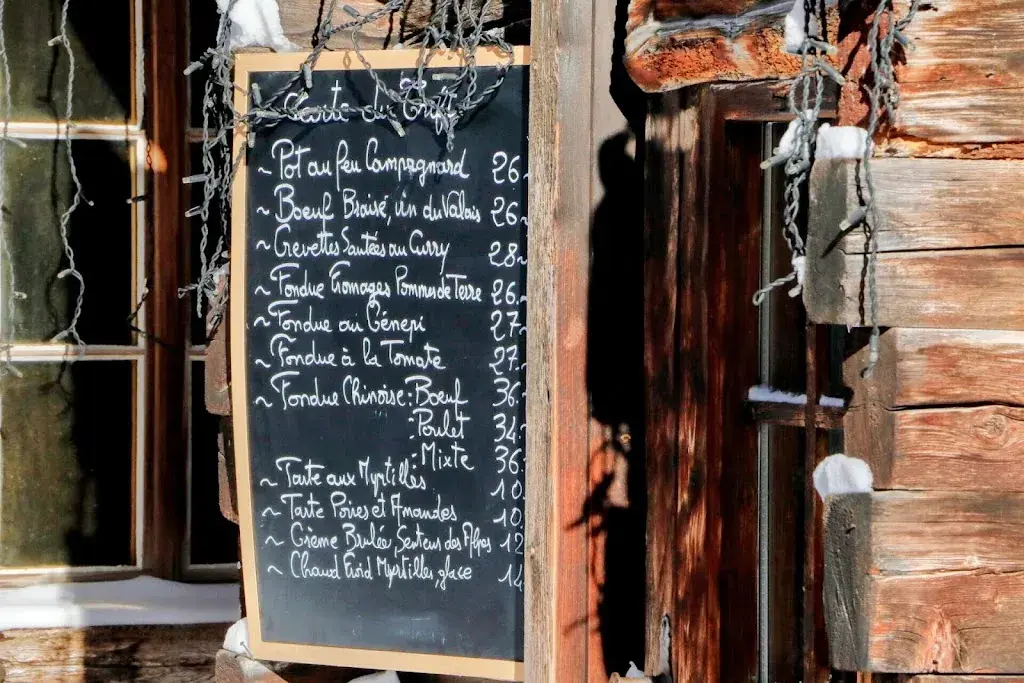 Carte du
~ Pot au feu Campagnard 26.-
~ Boeuf Braisé, vin du Valais 26.-
~ Crevettes Sautées au Curry 28.-
~ Fondue Fromages Pommes de Terre 26.-
~ Fondue au Génepi 27.-
~ Fondue à la Tomate 27.-
~ Fondue Chinoise: Boeuf 36.-
: Poulet 34.-
: Mixte 36.-
~ Tarte aux Myrtilles 10
~ Tarte Poires et Amandes 10
~ Crème Brulée, Senteurs des Alpes 12
~ Chaud Froid Myrtilles, glace 14